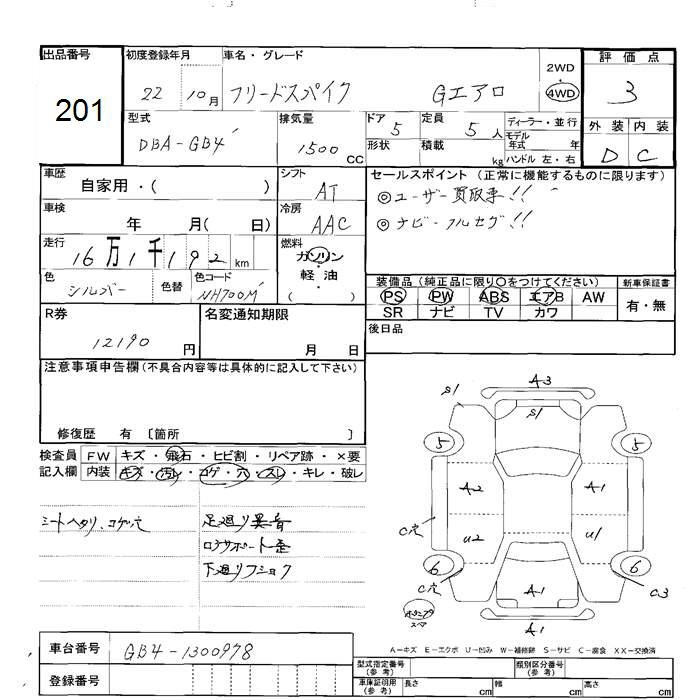 出品番号
201
初度登録年月
22 10月
車名・グレード
フリードスパイク Gエアロ
2WD
4WD
評価点
3
型式
DBA-GB4
排気量
1500 CC
ドア
5
形状
定員
5人
積載
kg
ディーラー・並行
モデル
年式 年
ハンドル 左・右
外装 内装
D C
車歴
自家用・( )
シフト
AT
セールスポイント (正常に機能するものに限ります)
◎ユーザー買取車!!
◎ナビーフルセグ!!
車検
年 月( 日)
冷房
AAC
走行
16万1千192km
燃料
ガソリン
・
軽油
( )
色
シルバー
色替
色コード
NH700M
装備品(純正品に限り○をつけてください)
PS PW ABS エアB AW
SR ナビ TV カワ
新車保証書
有・無
R券
12190 円
名変通知期限
月 日
後日品
注意事項申告欄(不具合内容等は具体的に記入して下さい)
修復歴 有 〔箇所 〕
検査員
記入欄
FW キズ・飛石・ヒビ割・リペア跡・×要
内装 キズ・汚レ・コゲ・穴・スレ・キレ・破レ
シートヘタリ、コゲ穴
足廻り異音
ロアサポート歪
下廻りフショク
A3
S1
S1
5
5
A2
A1
C穴
U2
U1
6
6
C穴
C3
A1
スペア
A1
A-キズ E-エクボ U-凹み W-補修跡 S-サビ C-腐食 XX-交換済
車台番号
GB4-1300978
登録番号
型式指定番号
(参考)
類別区分番号
(参考)
車庫証明用
(参考)
長さ cm
幅 cm
高さ cm